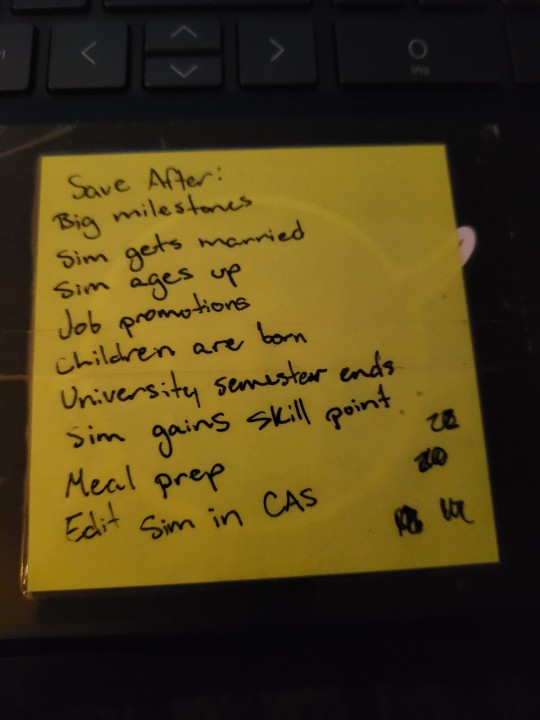 O
ins
Save After:
Big milestones
Sim gets married
Sim ages up
Job promotions
Children are born
University semester ends
Sim gains skill point
Meal prep
Edit Sim in CAS